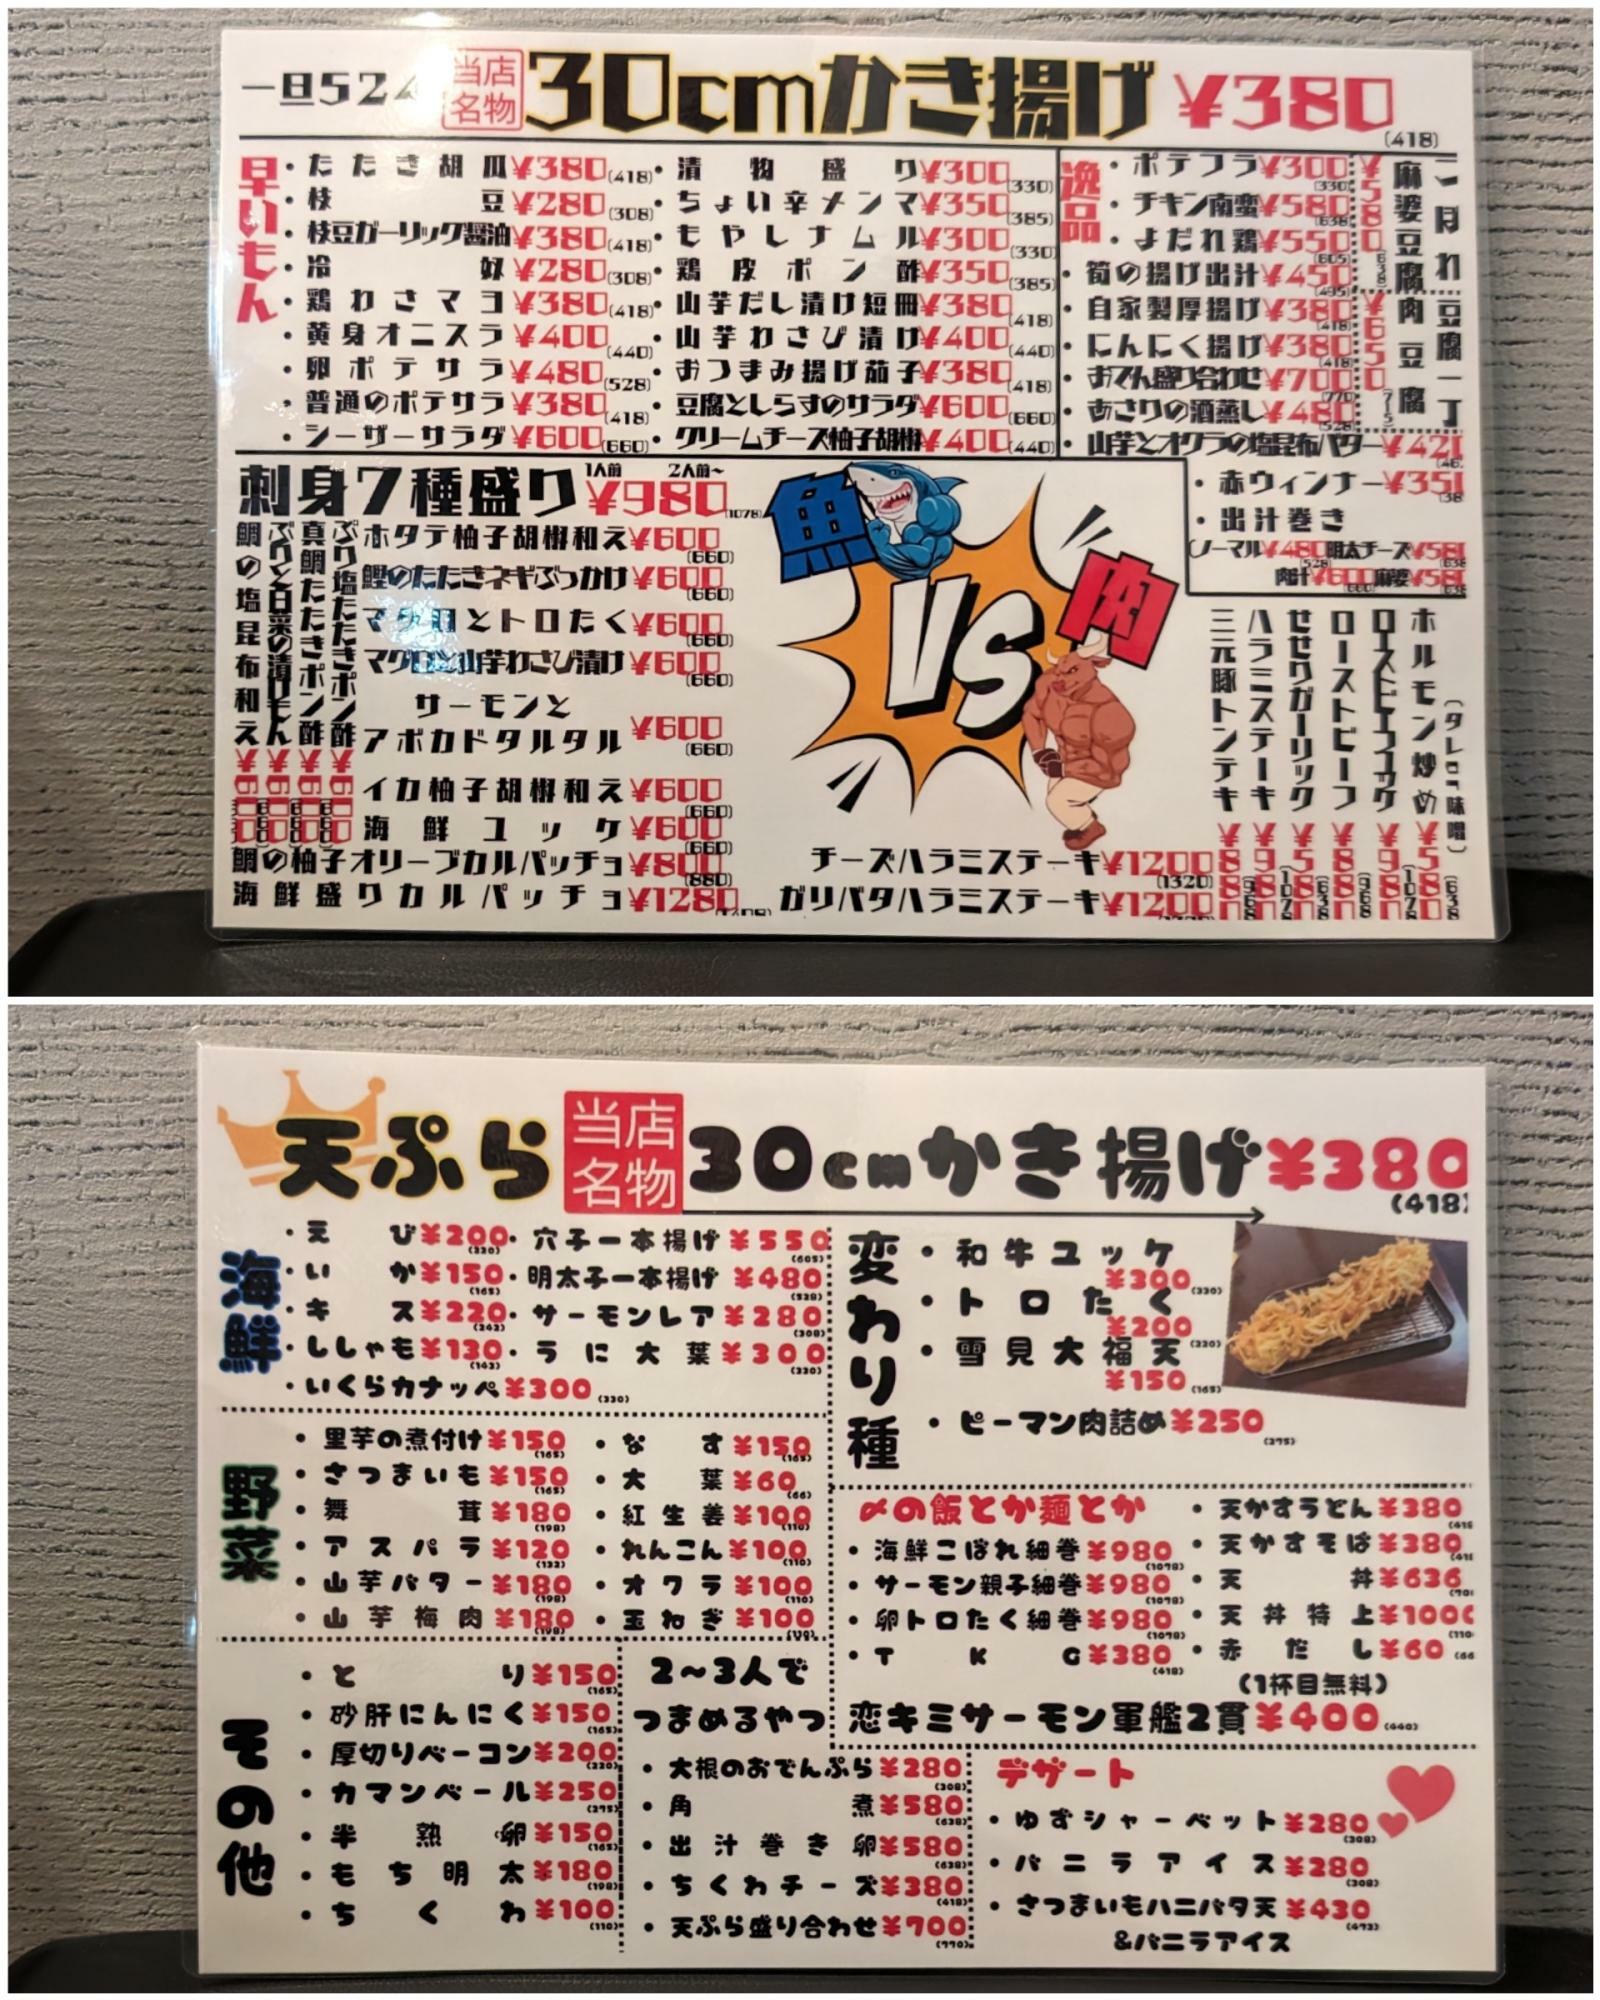 一旦524
当店名物
30cmかき揚げ ¥380
(418)
早いもん
・たたき胡瓜¥380(418)
・枝豆¥280(308)
・枝豆ガーリック醤油¥380(418)
・冷奴¥280(308)
・鶏わさマヨ¥380(418)
・黄身オニスラ¥400(440)
・卵ポテサラ¥480(528)
・普通のポテサラ¥380(418)
・シーザーサラダ¥600(660)
・漬物盛り¥300(330)
・ちょい辛メンマ¥350(385)
・もやしナムル¥300(330)
・鶏皮ポン酢¥350(385)
・山芋だし漬け短冊¥380(418)
・山芋わさび漬け¥400(440)
・おつまみ揚げ茄子¥380(418)
・豆腐としらすのサラダ¥600(660)
・クリームチーズ柚子胡椒¥400(440)
逸品
・ポテフラ¥300(330)
・チキン南蛮¥580(638)
・よだれ鶏¥550(605)
・筍の揚げ出汁¥450(495)
・自家製厚揚げ¥380(418)
・にんにく揚げ¥380(418)
・おでん盛り合わせ¥700(770)
・あさりの酒蒸し¥480(528)
・山芋とオクラの塩昆布バター¥42
こぼれ麻婆豆腐¥580(638)
豆腐一丁肉豆腐¥650(715)
・赤ウィンナー¥35
・出汁巻き
(ノーマル¥480(528)明太チーズ¥58
肉汁¥600(660)麻婆¥58
刺身7種盛り 1人前 2人前~ ¥980(1078)
鯛の塩昆布和え¥600(660)
ぶりと白菜の漬けもん¥600(660)
真鯛たたきポン酢¥600(660)
ぶり塩たたきポン酢¥600(660)
ホタテ柚子胡椒和え¥600(660)
鰹のたたきネギぶっかけ¥600(660)
マグロとトロたく¥600(660)
マグロと山芋わさび漬け¥600(660)
サーモンと
アボカドタルタル¥600(660)
イカ柚子胡椒和え¥600(660)
海鮮ユッケ¥600(660)
鯛の柚子オリーブカルパッチョ¥800(880)
海鮮盛りカルパッチョ¥1280
魚
VS
肉
三元豚トンテキ¥880(968)
ハラミステーキ¥980(1078)
せせりガーリック¥580(638)
ローストビーフ¥880(968)
ローストビーフユッケ¥980(1078)
ホルモン炒め(タレor味噌)¥580(638)
チーズハラミステーキ¥1200(1320)
ガリバタハラミステーキ¥1200
天ぷら
当店名物
30cmかき揚げ¥380
(418)
海鮮
・えび¥200(220)
・いか¥150(165)
・キス¥220(242)
・ししゃも¥130(143)
・いくらカナッペ¥300(330)
・穴子一本揚げ¥550(605)
・明太子一本揚げ¥480(528)
・サーモンレア¥280(308)
・うに大葉¥300(330)
変わり種
・和牛ユッケ
¥300(330)
・トロたく
¥200(220)
・雪見大福天
¥150(165)
・ピーマン肉詰め¥250(275)
野菜
・里芋の煮付け¥150(165)
・さつまいも¥150(165)
・舞茸¥180(198)
・アスパラ¥120(132)
・山芋バター¥180(198)
・山芋梅肉¥180(198)
・なす¥150(165)
・大葉¥60(66)
・紅生姜¥100(110)
・れんこん¥100(110)
・オクラ¥100(110)
・玉ねぎ¥100(110)
〆の飯とか麺とか
・海鮮こぼれ細巻¥980(1078)
・サーモン親子細巻¥980(1078)
・卵トロたく細巻¥980(1078)
・TKG¥380(418)
・天かすうどん¥380
・天かすそば¥380
・天丼¥636
・天丼特上¥1000
・赤だし¥60
(1杯目無料)
恋キミサーモン軍艦2貫¥400(440)
その他
・とり¥150(165)
・砂肝にんにく¥150(165)
・厚切りベーコン¥200(220)
・カマンベール¥250(275)
・半熟卵¥150(165)
・もち明太¥180(198)
・ちくわ¥100(110)
2~3人で
つまめるやつ
・大根のおでんぷら¥280(308)
・角煮¥580(638)
・出汁巻き卵¥580(638)
・ちくわチーズ¥380(418)
・天ぷら盛り合わせ¥700(770)
デザート
・ゆずシャーベット¥280(308)
・バニラアイス¥280(308)
・さつまいもハニバタ天¥430(473)
&バニラアイス